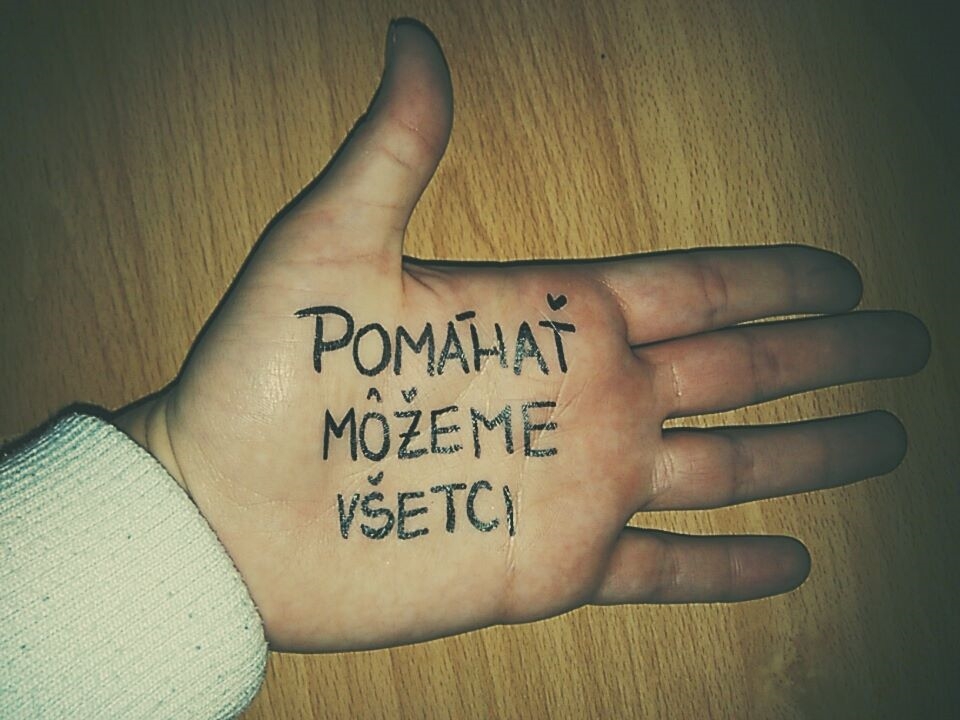 POMÁHAŤ
MÔŽEME
VŠETCI